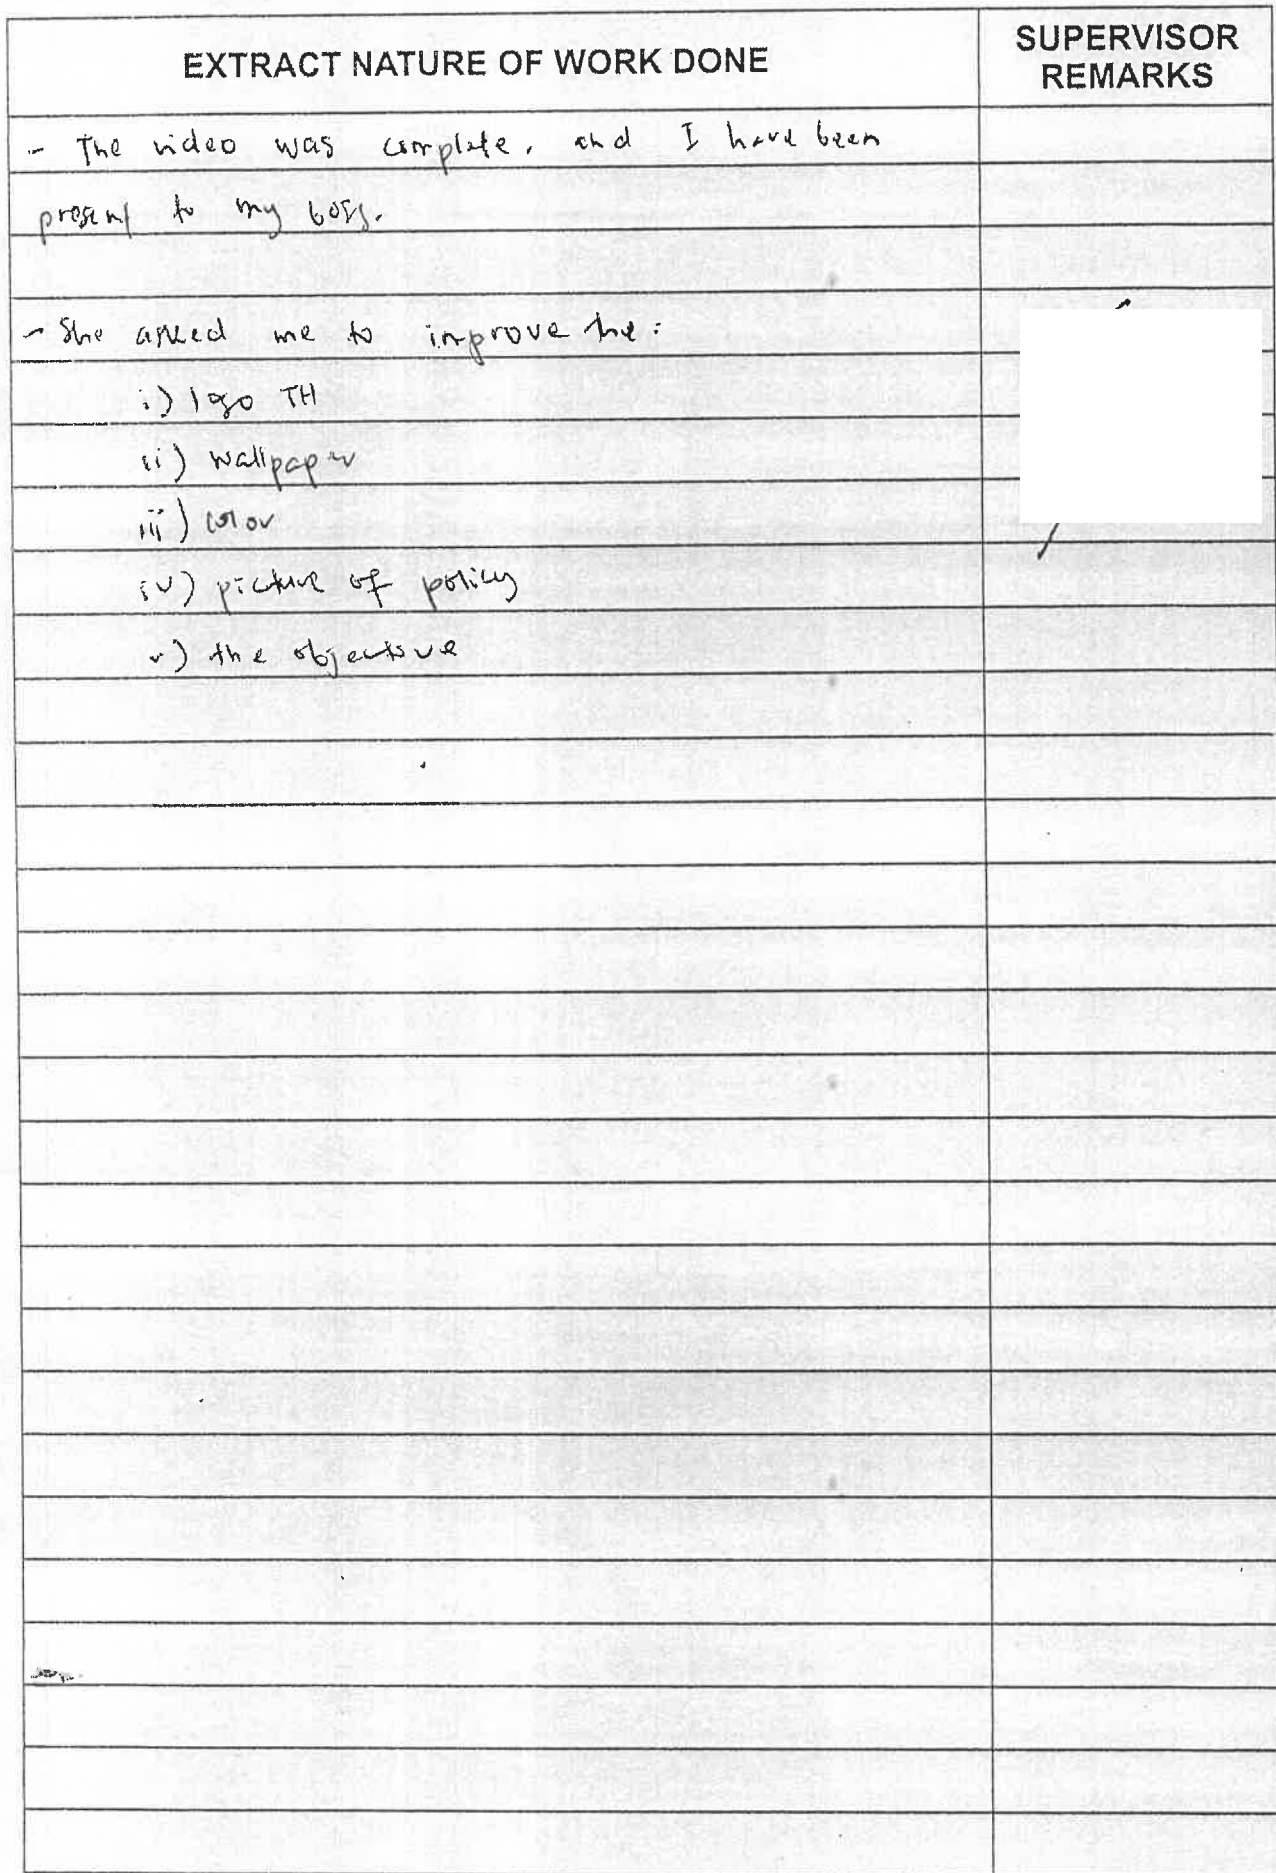 EXTRACT NATURE OF WORK DONE
SUPERVISOR
REMARKS
- The video was complete, and I have been
present to my boss.
- She asked me to improve the:
i) logo TH
ii) wallpaper
iii) color
iv) picture of policy
v) the objective